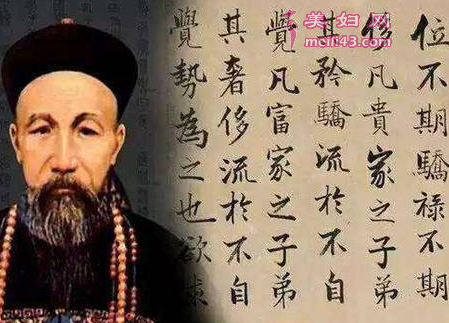 美妇网
位不期驕祿不期
侈凡貴家之子弟
其矜驕流於不自
覺凡富家之子弟
其奢侈流於不自
覺勢為之也欲求